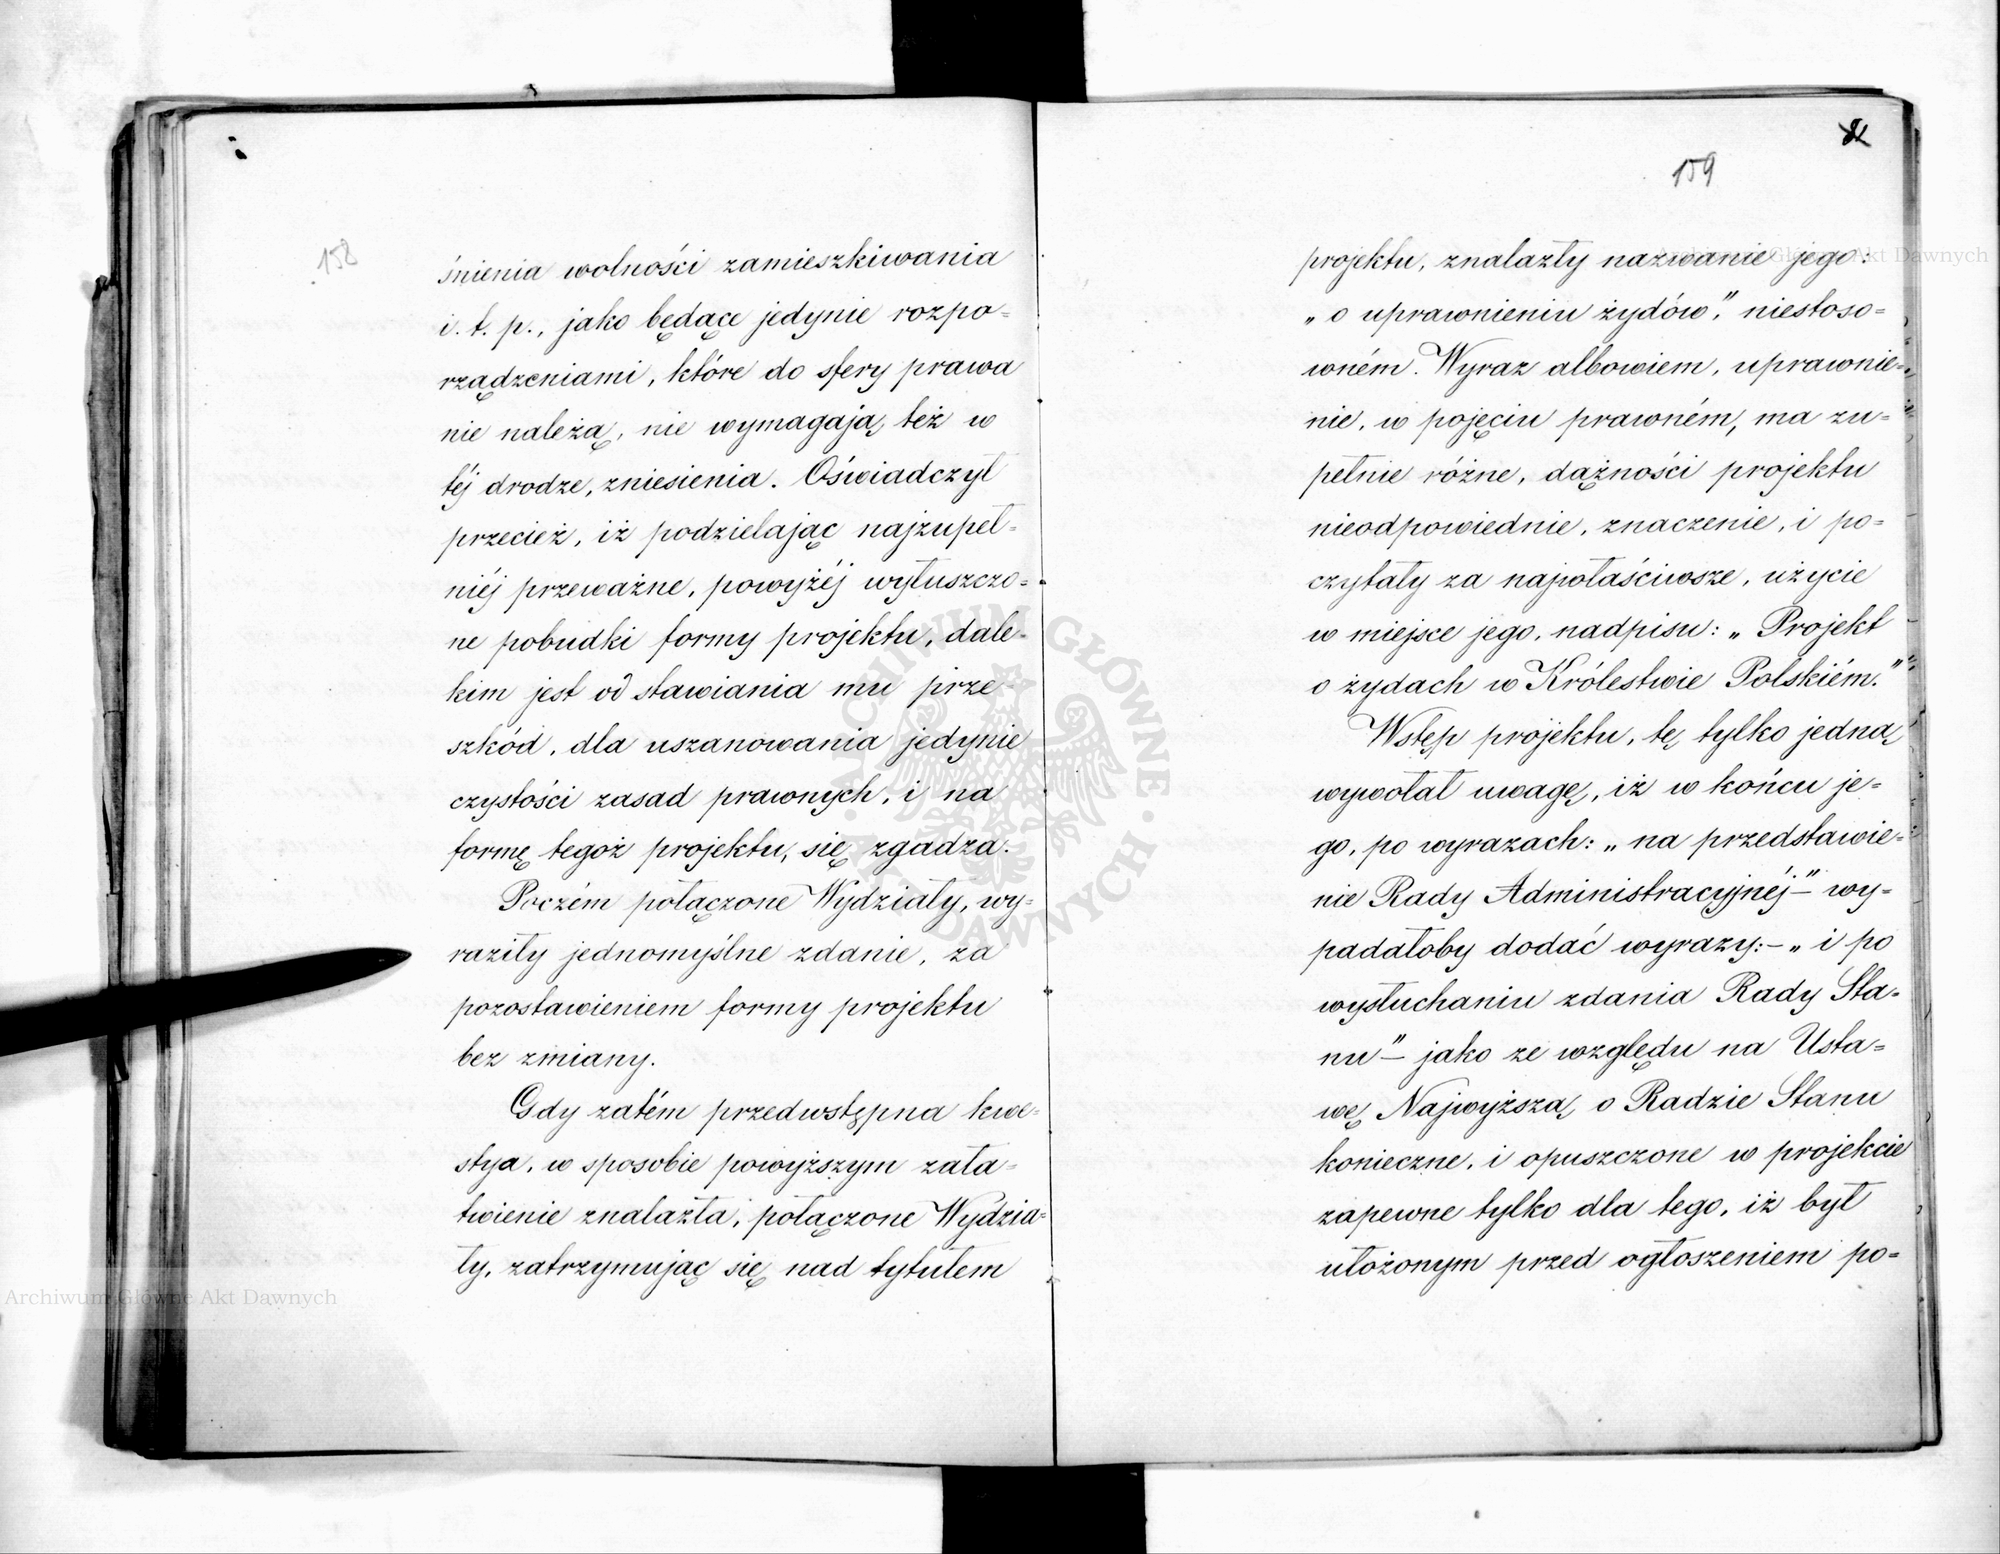 158
śnienia wolności zamieszkiwania
i. t. p., jako będące jedynie rozpo=
rządzeniami, które do sfery prawa
nie należą, nie wymagają też w
téj drodze, zniesienia. Oświadczył
przecież, iż podzielając najzupeł=
niéj przeważne, powyżéj wyłuszczo=
ne pobudki formy projektu, dale=
kim jest od stawiania mu prze=
szkód, dla uszanowania jedynie
czystości zasad prawnych, i na
formę tegoż projektu, się zgadza.
Poczém połączone Wydziały, wy=
raziły jednomyślne zdanie, za
pozostawieniem formy projektu
bez zmiany.
Gdy zatém przedwstępna kwe=
stya, w sposobie powyższym zała=
twienie znalazła, połączone Wydzia=
ły, zatrzymując się nad tytułem
Archiwum Główne Akt Dawnych
159
projektu, znalazły nazwanie jego:
„o uprawnieniu żydów," niestoso=
wném. Wyraz albowiem, uprawnie=
nie, w pojęciu prawném, ma zu=
pełnie różne, dążności projektu
nieodpowiednie, znaczenie, i po=
czytały za najwłaściwsze, użycie
w miejsce jego, nadpisu: „Projekt
o żydach w Królestwie Polskiém."
Wstęp projektu, tę tylko jedną
wywołał uwagę, iż w końcu je=
go, po wyrazach: „na przedstawie=
nie Rady Administracyjnéj" – wy=
padałoby dodać wyrazy: – „i po
wysłuchaniu zdania Rady Sta=
nu" – jako ze względu na Usta=
wę Najwyższą o Radzie Stanu
konieczne, i opuszczone w projekcie
zapewne tylko dla tego, iż był
ułożonym przed ogłoszeniem po=
Archiwum Główne Akt Dawnych
ARCHIWUM GŁÓWNE AKT DAWNYCH